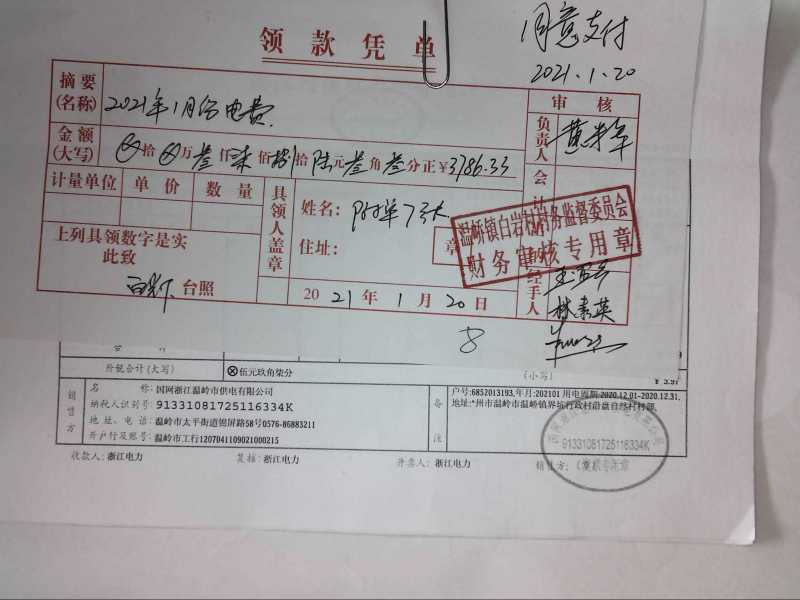 领款凭单
同意支付
2021.1.20
摘要
(名称)
2021年1月份电费
审核
金额
(大写)
⊗拾⊗万叁仟柒佰捌拾陆元叁角叁分正¥3786.33
负责人
计量单位 单价 数量
具领人盖章
姓名: 附单7张
住址:
会计
章
温峤镇白岩村村务监督委员会
财务审核专用章
上列具领数字是实
此致
台照
2021年1月20日
经手人
林素英
8
价税合计(大写)
⊗伍元玖角柒分
(小写)
¥ 5.97
销售方
名称: 国网浙江温岭市供电有限公司
纳税人识别号: 91331081725116334K
地址、电话: 温岭市太平街道锦屏路58号0576-86883211
开户行及账号: 温岭市工行1207041109021000215
备注
户号:6852013193,年月:202101 用电周期:2020.12.01-2020.12.31,
地址:*州市温岭市温峤镇界坊行政村前盘自然村村部,
91331081725116334K
收款人: 浙江电力
复核: 浙江电力
开票人: 浙江电力
销售方: (章)